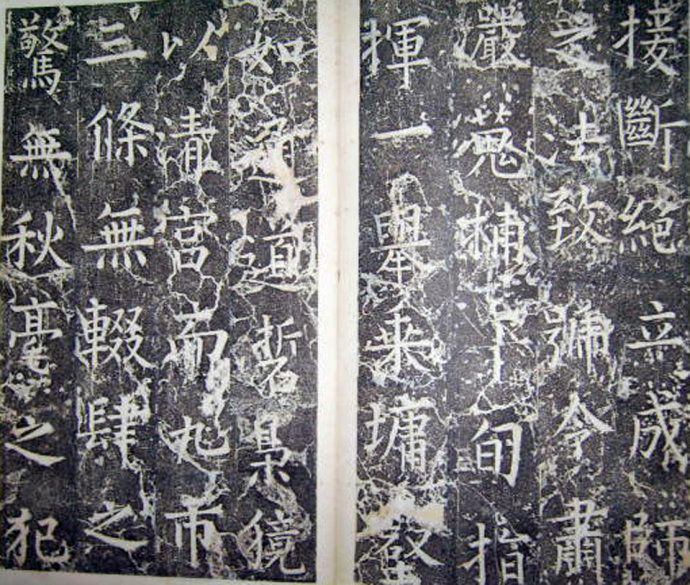 接斷絕立成師
之法致令肅
嚴蒐補旬指
揮一舉乘墉
如通道硩梟獍
以清宮而九市
三條無輟肆之
驚無秋毫之犯